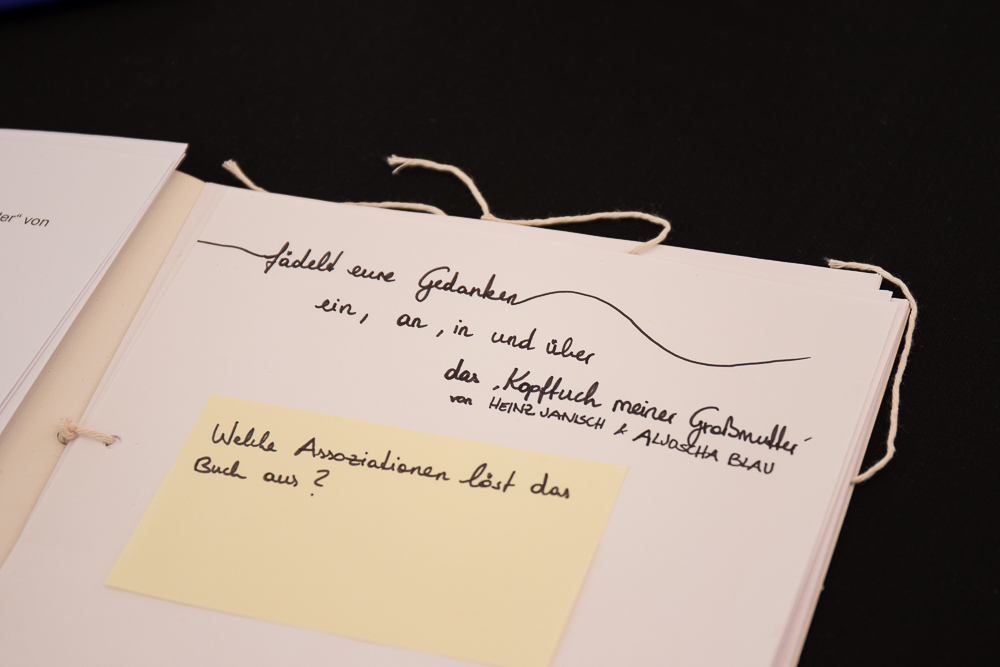 er" von
fädelt eure Gedanken
ein, an, in und über
das ,Kopftuch meiner Großmutter'
von HEINZ JANISCH & ALJOSCHA BLAU
Welche Assoziationen löst das
Buch aus ?